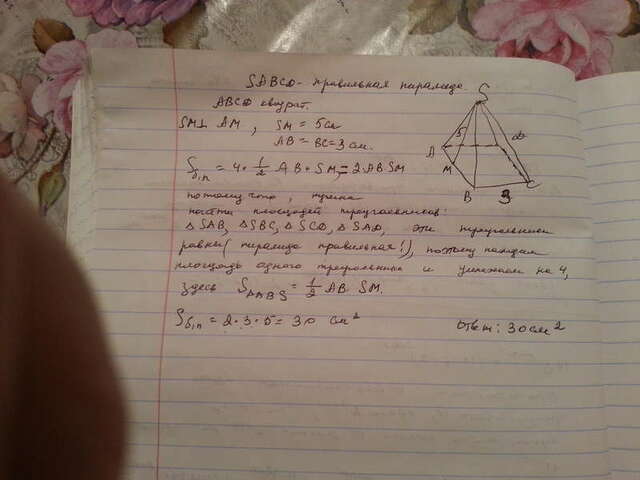 SABCD - правильная пирамида.
ABCD квадрат.
SM⊥ AM, SM = 5см
AB = BC = 3 см.
S
A
M
B
C
D
5
3
Sб,п = 4 · 1/2 AB · SM = 2 AB SM
потому что, нужна
площадей треугольников:
△ SAB, △ SBC, △ SCD, △ SAD, эти треугольники
равны (пирамида правильная!), поэтому находим
площадь одного треугольника и умножаем на 4,
здесь S△ABS = 1/2 AB SM.
Sб,п = 2·3·5 = 30 см²
Ответ: 30 см²